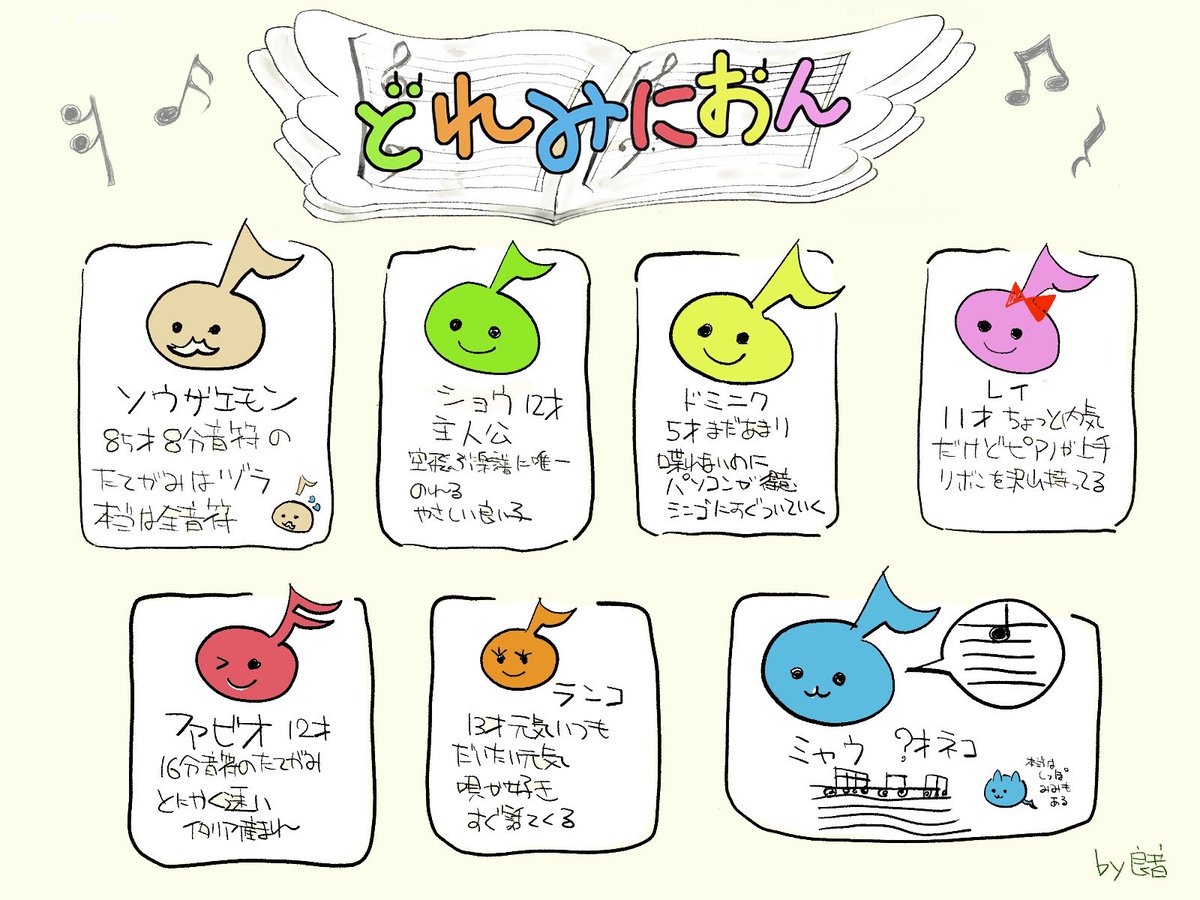 どれみにおん
ソウザエモン
85才 8分音符の
たてがみはヅラ
本当は全音符
ショウ 12才
主人公
空飛ぶ楽譜に唯一
のれる
やさしい良い子
ドミニク
5才 まだあまり
喋れないのに
パソコンが得意
ミニゴにすぐついていく
レイ
11才 ちょっと内気
だけどピアノが上手
リボンを沢山持ってる
ファビオ 12才
16分音符のたてがみ
とにかく速い
イタリア産まれ
ランコ
13才 元気いつも
だいたい元気
唄が好き
すぐ誘てくる
ミャウ ?才 ネコ
本当は
しっぽ。
みみも
ある
by 良音